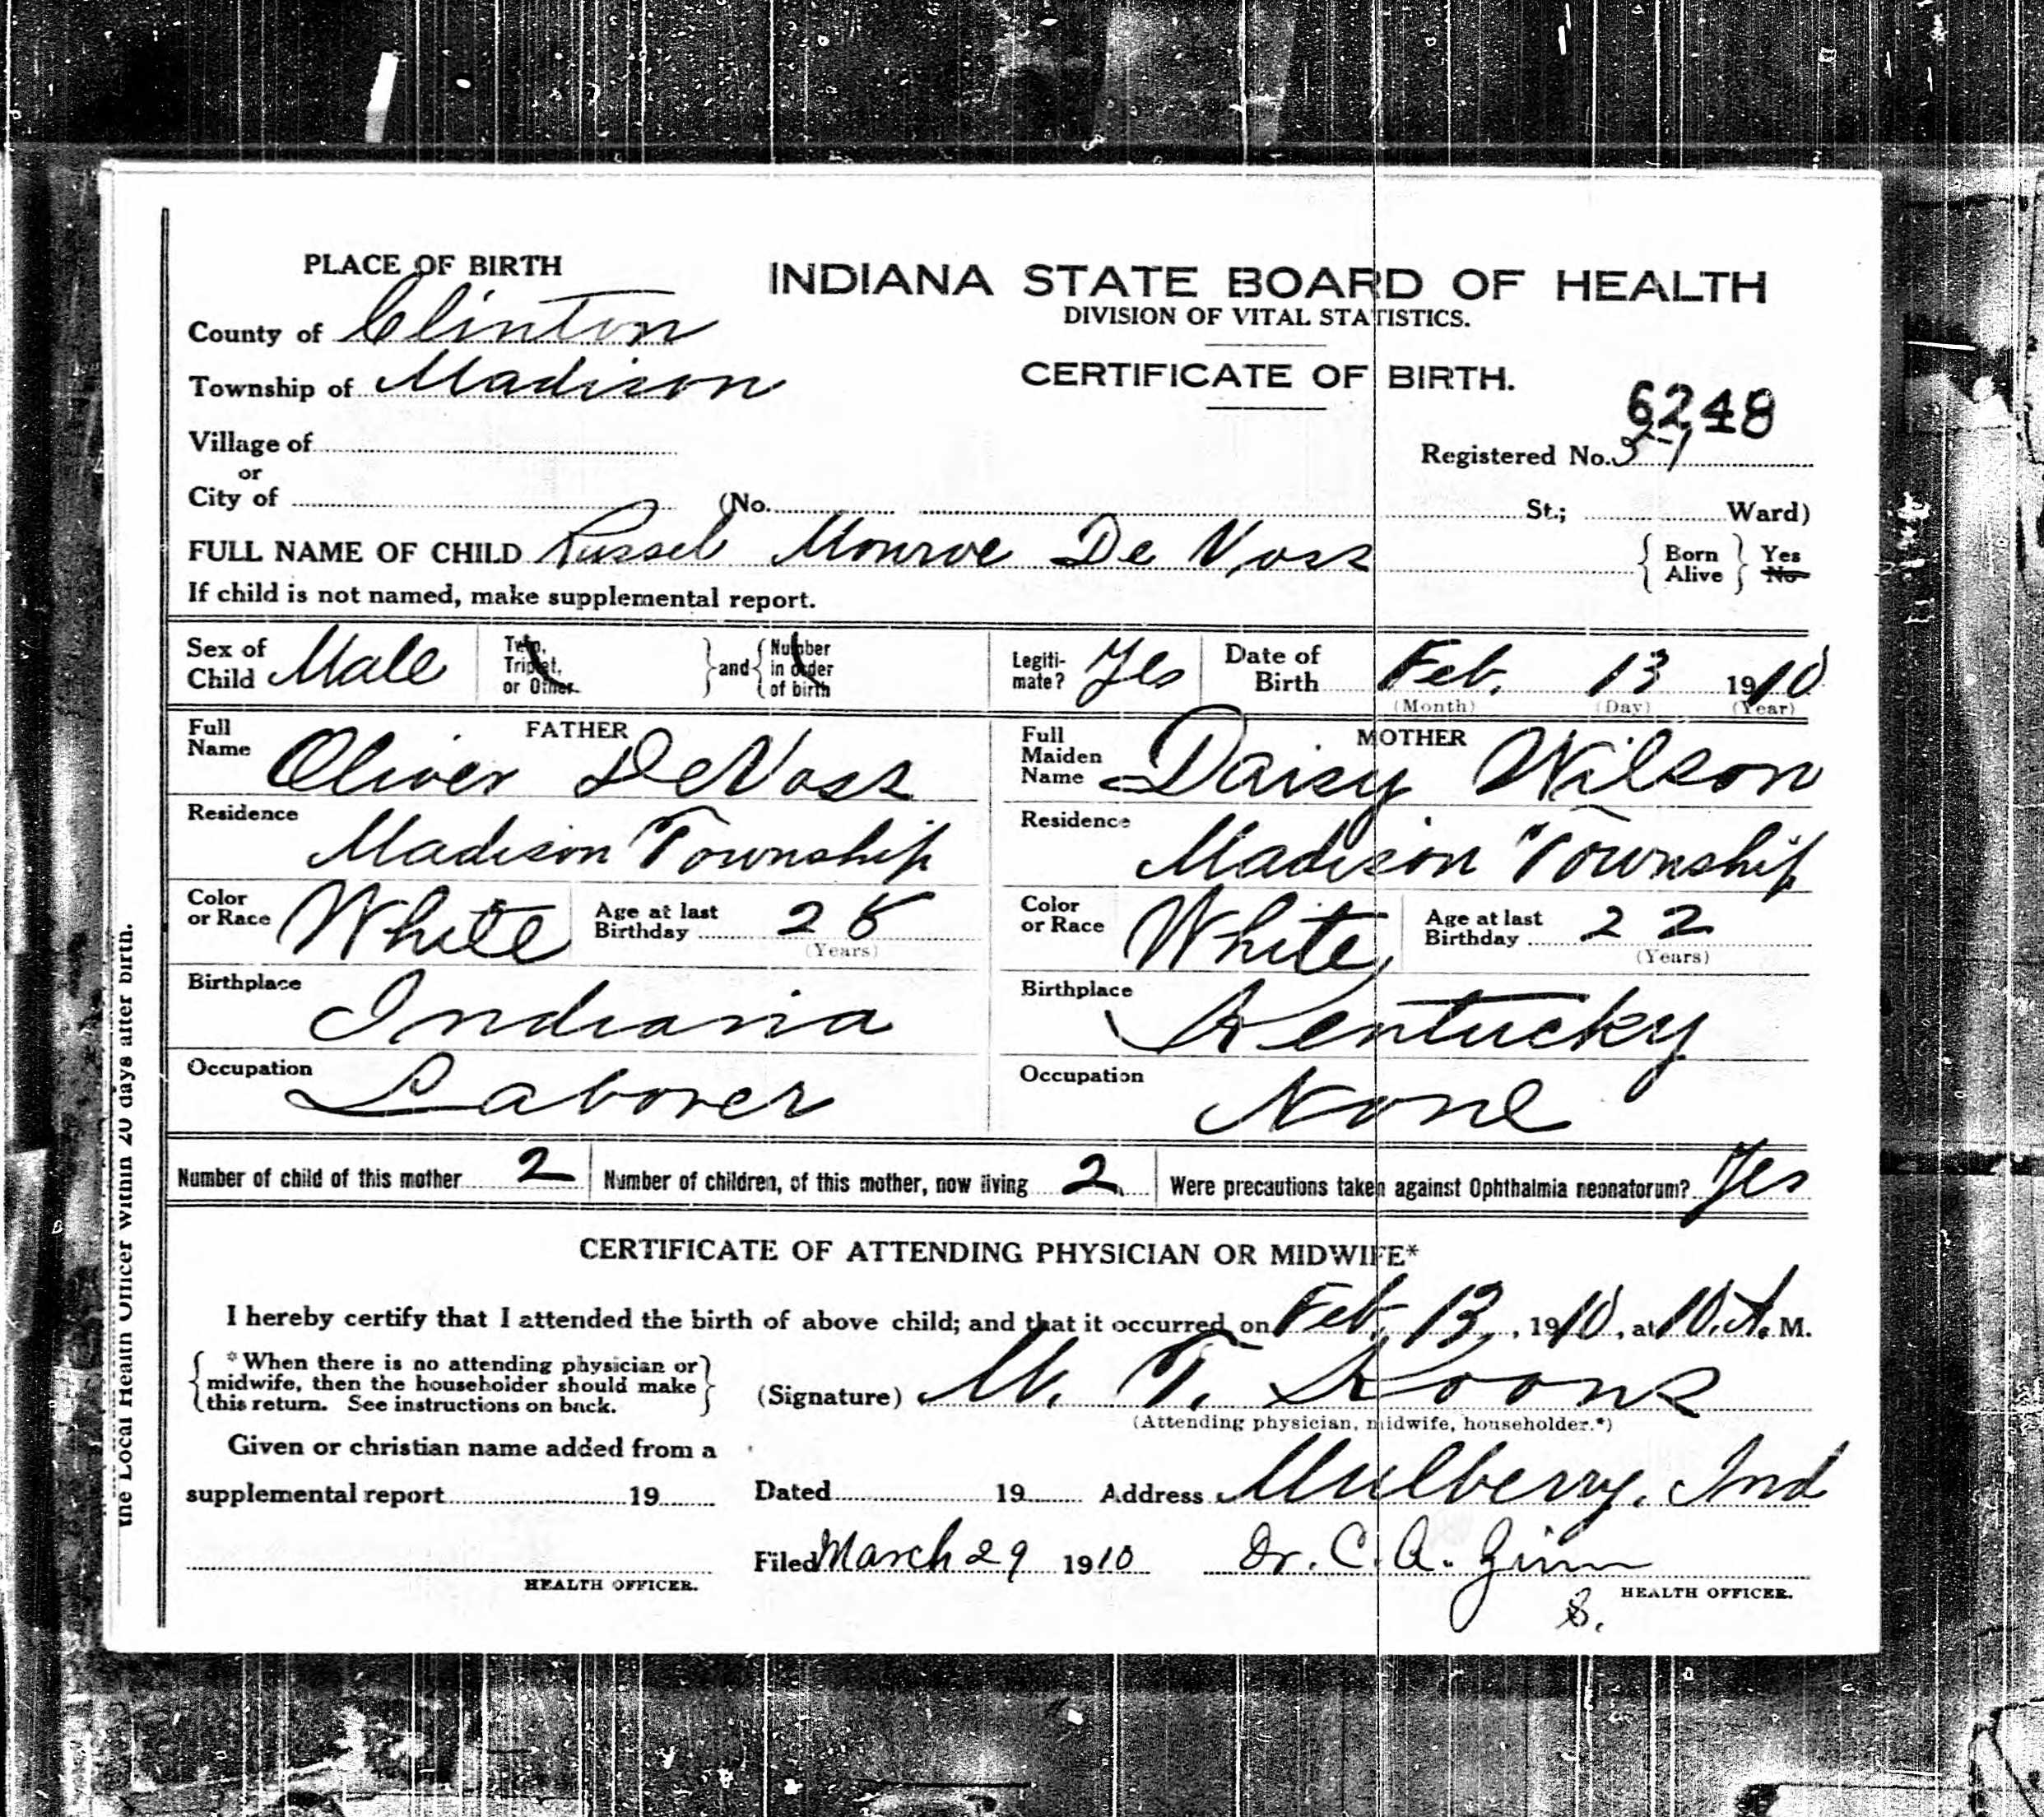 PLACE OF BIRTH
INDIANA STATE BOARD OF HEALTH
DIVISION OF VITAL STATISTICS.
County of Clinton
Township of Madison
CERTIFICATE OF BIRTH.
6248
Village of
or
Registered No.
City of (No. St.; Ward)
FULL NAME OF CHILD Russel Monroe De Voss { Born Alive } Yes No
If child is not named, make supplemental report.
Sex of Child Male Twin, Triplet, or Other } and { Number in order of birth Legiti-mate? Yes Date of Birth Feb. 13 1910
(Month) (Day) (Year)
FATHER
Full Name Oliver DeVoss
Residence Madison Township
Color or Race White Age at last Birthday 28
(Years)
Birthplace Indiana
Occupation Laborer
MOTHER
Full Maiden Name Daisy Wilson
Residence Madison Township
Color or Race White Age at last Birthday 22
(Years)
Birthplace Kentucky
Occupation None
Number of child of this mother 2 Number of children, of this mother, now living 2 Were precautions taken against Ophthalmia neonatorum? Yes
CERTIFICATE OF ATTENDING PHYSICIAN OR MIDWIFE*
I hereby certify that I attended the birth of above child; and that it occurred on Feb. 13, 1910, at 10. A. M.
{ *When there is no attending physician or
midwife, then the householder should make
this return. See instructions on back. }
(Signature) T. Koons
(Attending physician, midwife, householder.*)
Given or christian name added from a
supplemental report 19
Dated 19 Address Mulberry, Ind
Filed March 29 1910 Dr. C. A. Zinn
HEALTH OFFICER.
HEALTH OFFICER.
the Local Health Officer within 20 days after birth.